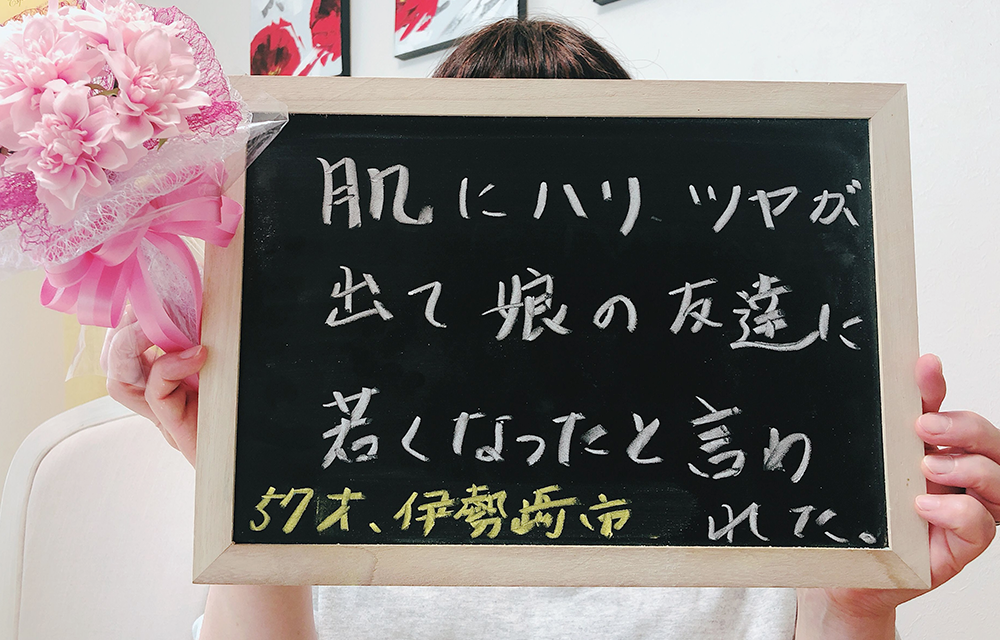 肌にハリ ツヤが
出て 娘の友達に
若くなったと言わ
れた。
57才、伊勢崎市